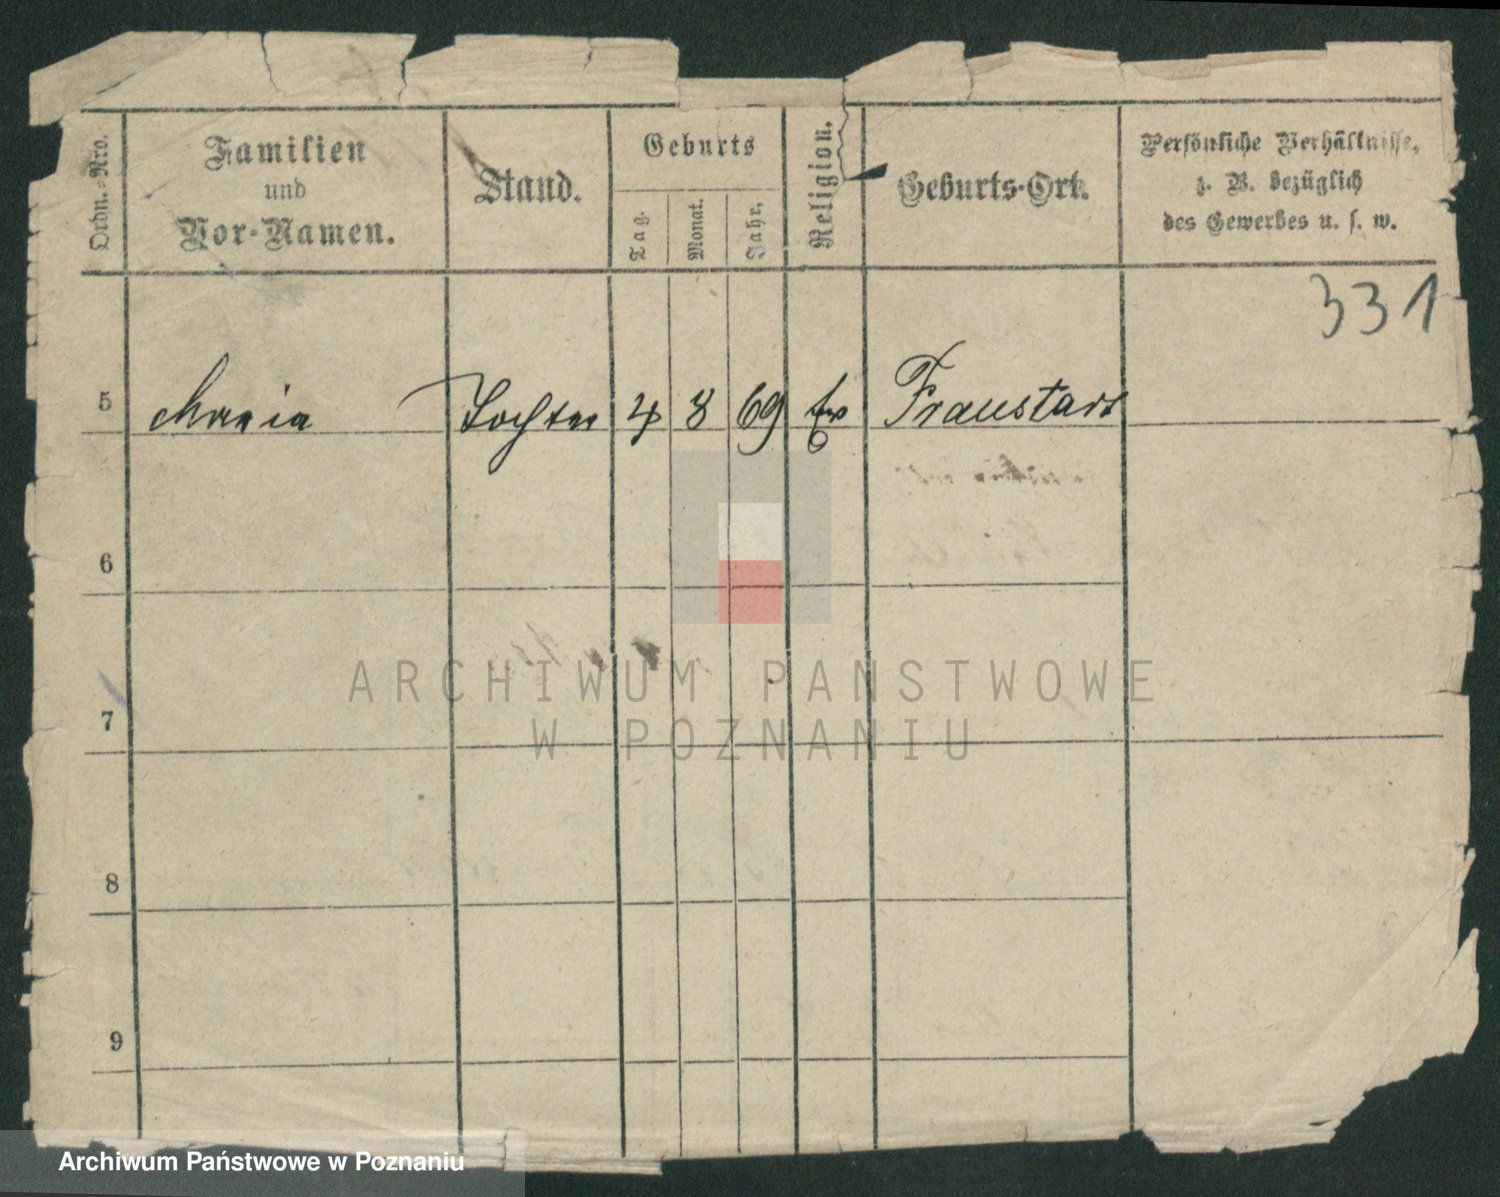 Ordn.-Nro.
Familien
und
Vor-Namen.
Stand.
Geburts
Tag.
Monat.
Jahr.
Religion.
Geburts-Ort.
Persönliche Verhältnisse,
z. B. bezüglich
des Gewerbes u. s. w.
331
5 Maria Tochter 4 8 69 Fraustadt
6
7
8
9
ARCHIWUM PAŃSTWOWE
W POZNANIU
Archiwum Państwowe w Poznaniu